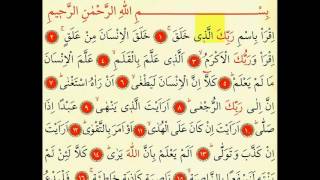 بِسْمِ اللهِ الرَّحْمٰنِ الرَّحِيمِ
اِقْرَأْ بِاسْمِ رَبِّكَ الَّذِى خَلَقَ ﴿١﴾ خَلَقَ الْاِنْسَانَ مِنْ عَلَقٍ ﴿٢﴾
اِقْرَأْ وَرَبُّكَ الْاَكْرَمُ ﴿٣﴾ الَّذِى عَلَّمَ بِالْقَلَمِ ﴿٤﴾ عَلَّمَ الْاِنْسَانَ
مَا لَمْ يَعْلَمْ ﴿٥﴾ كَلَّٓا اِنَّ الْاِنْسَانَ لَيَطْغٰىۙ ﴿٦﴾ اَنْ رَاٰهُ اسْتَغْنٰىۜ ﴿٧﴾
اِنَّ اِلٰى رَبِّكَ الرُّجْعٰىۜ ﴿٨﴾ اَرَاَيْتَ الَّذِى يَنْهٰىۙ ﴿٩﴾ عَبْدًا اِذَا
صَلّٰىۜ ﴿١٠﴾ اَرَاَيْتَ اِنْ كَانَ عَلَى الْهُدٰىۙ ﴿١١﴾ اَوْ اَمَرَ بِالتَّقْوٰىۜ ﴿١٢﴾ اَرَاَيْتَ
اِنْ كَذَّبَ وَتَوَلّٰىۜ ﴿١٣﴾ اَلَمْ يَعْلَمْ بِاَنَّ اللهَ يَرٰىۜ ﴿١٤﴾ كَلَّا لَئِنْ لَمْ